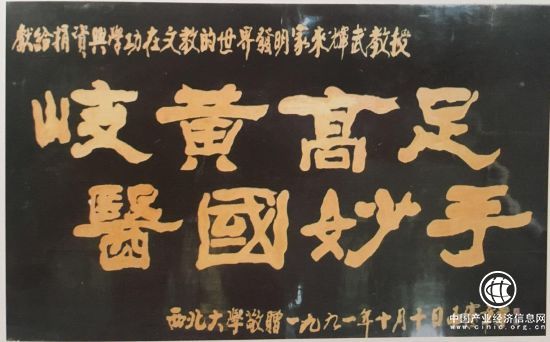 獻給捐資興學功在文教的世界發明家來輝武教授
岐黃高足
醫國妙手
西北大學敬贈一九九一年十月十日
中国产业经济信息网
www.cinic.org.cn